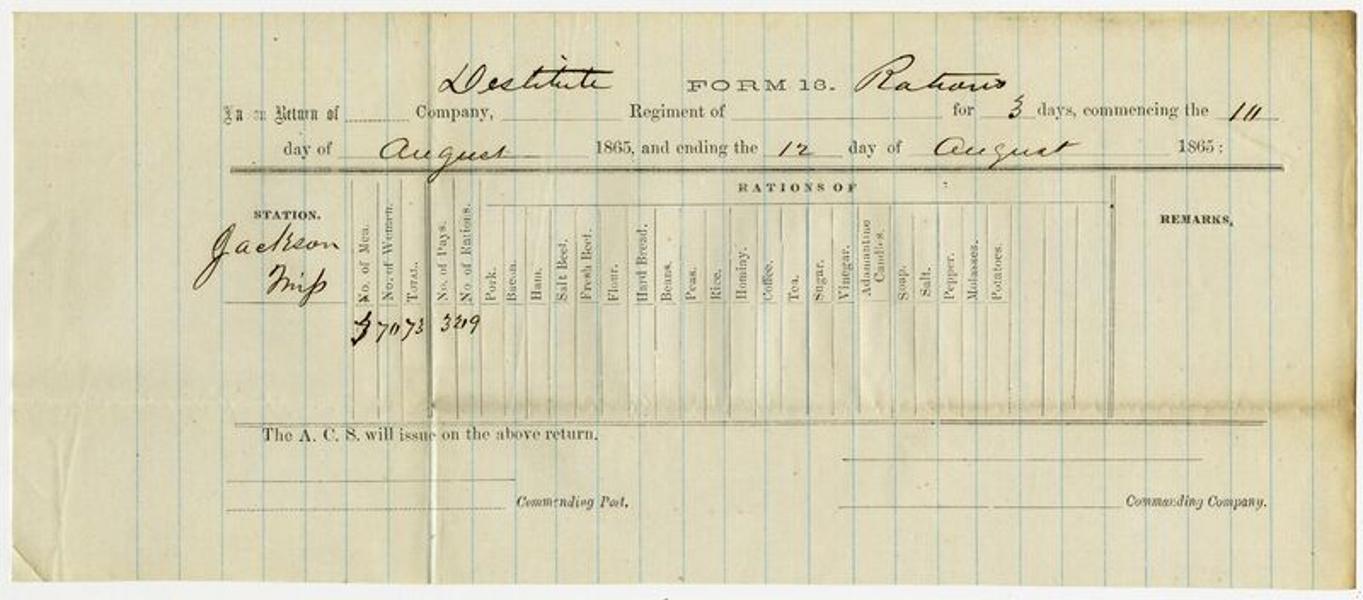 Destitute FORM 13. Rations
In on Return of Company, Regiment of for 3 days, commencing the 10
day of August 1865, and ending the 12 day of August 1865:
RATIONS OF
STATION. No. of Men. No. of Women. TOTAL. No. of Days. No. of Rations. Pork. Bacon. Ham. Salt Beef. Fresh Beef. Flour. Hard Bread. Beans. Peas. Rice. Hominy. Coffee. Tea. Sugar. Vinegar. Adamantine Candles. Soap. Salt. Pepper. Molasses. Potatoes. REMARKS,
Jackson
Miss
3 70 73 3 219
The A. C. S. will issue on the above return.
Commending Post. Commanding Company.